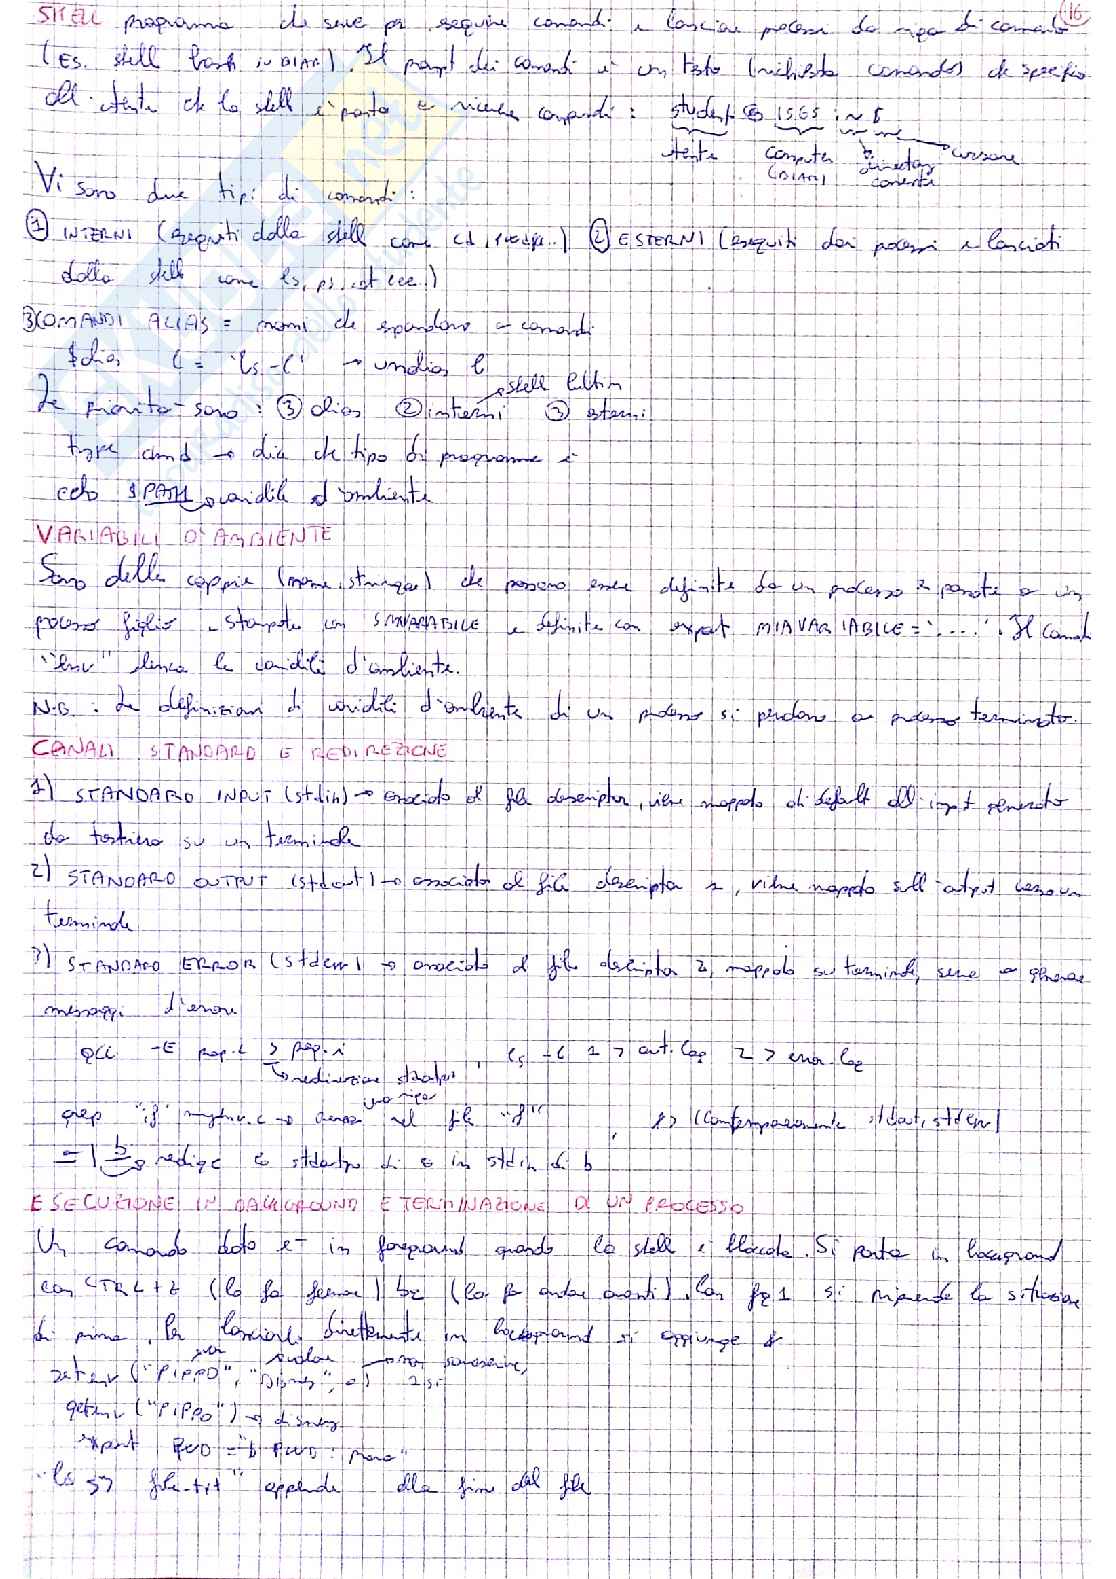 16
SHELL programma che serve per eseguire comandi e lanciare processi da riga di comando
(Es. shell bash in DIAN). Il prompt dei comandi è un testo (richiesta comando) che specifica
all'utente che la shell è pronta a ricevere comandi: student @ 15.65 : ~ $
utente computer (DIAN) directory corrente cursore
Vi sono due tipi di comandi:
① INTERNI (eseguiti dalla shell come cd, ..) ② ESTERNI (eseguiti da processi lanciati
dalla shell come ls, ps, cat ecc.)
3) COMANDI ALIAS = nomi che espandono a comandi
$ alias l = 'ls -l' → un alias l
Le priorità sono: ③ alias ② interni ③ esterni
shell builtin
type cmd → dice che tipo di programma è
echo $PATH → variabile d'ambiente
VARIABILI D'AMBIENTE
Sono delle coppie (nome, stringa) che possono essere definite da un processo e passate a un
processo figlio, stampate con $MIAVARIABILE e definite con export MIAVARIABILE = "....". Il comando
"env" elenca le variabili d'ambiente.
N.B. : Le definizioni di variabili d'ambiente di un processo si perdono a processo terminato.
CANALI STANDARD E REDIREZIONE
1) STANDARD INPUT (stdin) → associato al file descriptor, viene mappato di default all'input generato
da tastiera su un terminale
2) STANDARD OUTPUT (stdout) → associato al file descriptor 1, viene mappato sull'output verso un
terminale
3) STANDARD ERROR (stderr) → associato al file descriptor 2, mappato su terminale, serve a generare
messaggi d'errore
gcc -E prop.c > prop.i , ls -l 1 > out.log 2 > error.log
→ redirezione stdoutput
grep "if" → cerca nel file "if" , &> (contemporaneamente stdout, stderr)
una riga
= | b → redirige lo stdoutput di a in stdin di b
ESECUZIONE IN BACKGROUND E TERMINAZIONE DI UN PROCESSO
Un comando dato è in foreground quando la shell è bloccata. Si porta in background
con CTRL+Z (lo fa fermare) bg (lo fa andare avanti). Con fg 1 si riprende la situazione
di prima. Per lanciarli direttamente in background si aggiunge &
setenv ("PIPPO", "Disney", 0) → non sovrascrive, 1 si
var valore
getenv ("PIPPO") → disney
export PWD = "$PWD :
"ls >> file.txt" appende alla fine del file